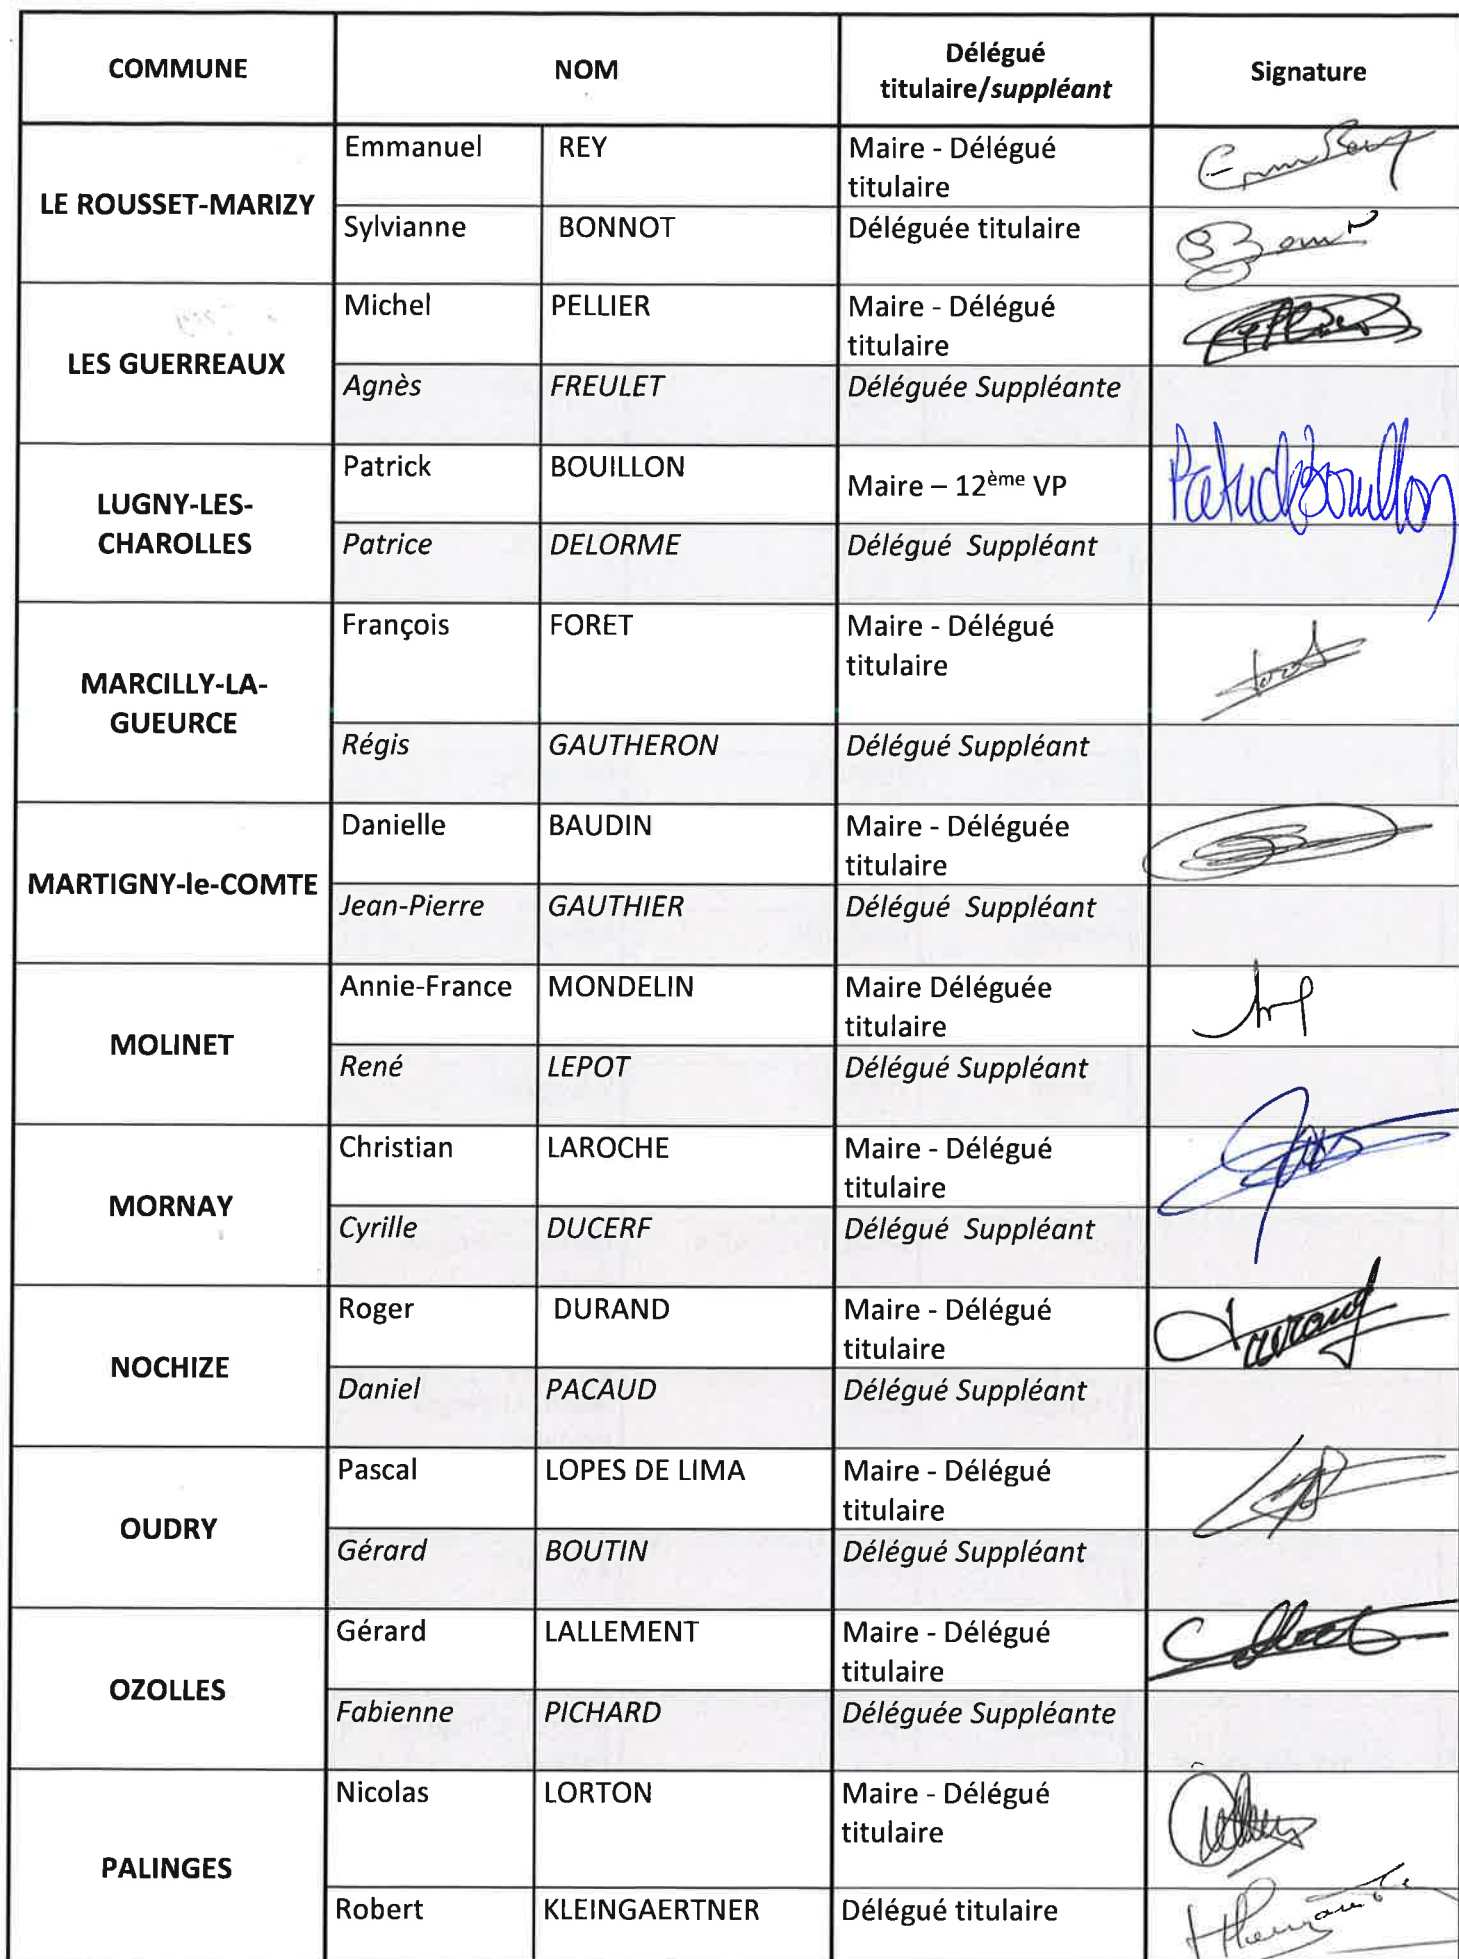 COMMUNE NOM Délégué titulaire/suppléant Signature
LE ROUSSET-MARIZY
Emmanuel REY Maire - Délégué titulaire
Sylvianne BONNOT Déléguée titulaire
LES GUERREAUX
Michel PELLIER Maire - Délégué titulaire
Agnès FREULET Déléguée Suppléante
LUGNY-LES-CHAROLLES
Patrick BOUILLON Maire – 12ème VP Patrick Bouillon
Patrice DELORME Délégué Suppléant
MARCILLY-LA-GUEURCE
François FORET Maire - Délégué titulaire
Régis GAUTHERON Délégué Suppléant
MARTIGNY-le-COMTE
Danielle BAUDIN Maire - Déléguée titulaire
Jean-Pierre GAUTHIER Délégué Suppléant
MOLINET
Annie-France MONDELIN Maire Déléguée titulaire
René LEPOT Délégué Suppléant
MORNAY
Christian LAROCHE Maire - Délégué titulaire
Cyrille DUCERF Délégué Suppléant
NOCHIZE
Roger DURAND Maire - Délégué titulaire
Daniel PACAUD Délégué Suppléant
OUDRY
Pascal LOPES DE LIMA Maire - Délégué titulaire
Gérard BOUTIN Délégué Suppléant
OZOLLES
Gérard LALLEMENT Maire - Délégué titulaire
Fabienne PICHARD Déléguée Suppléante
PALINGES
Nicolas LORTON Maire - Délégué titulaire
Robert KLEINGAERTNER Délégué titulaire